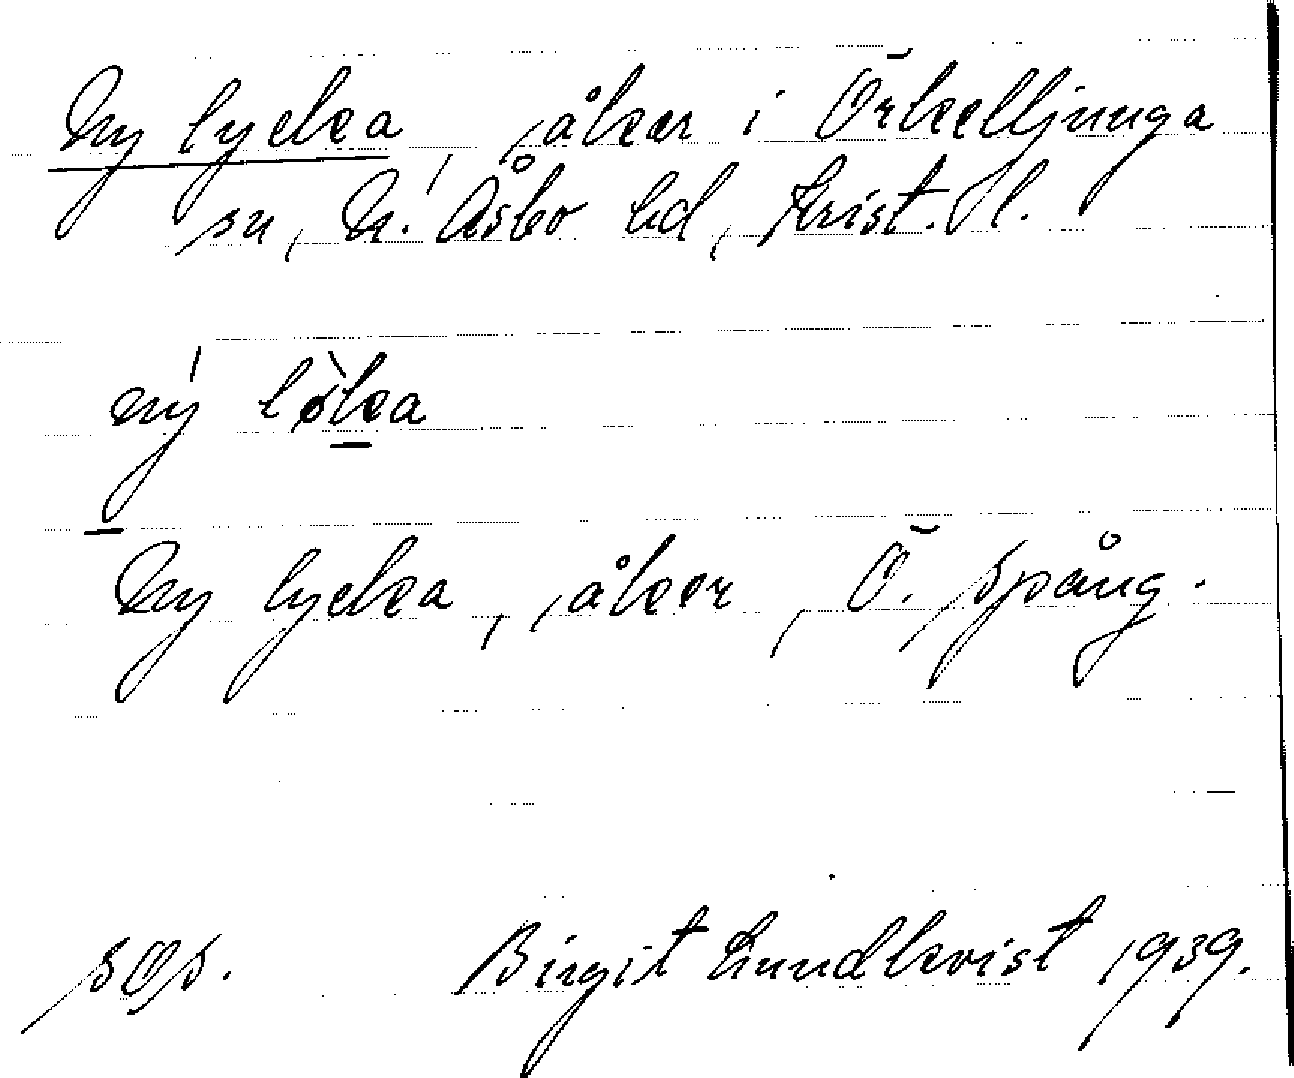 Ny lycka, åker i Örkelljunga
sn, N. Åsbo hd, Krist. l.
ny´ lø`ka
Ny lycka, åker, Ö. Spång.
søs. Birgit Lundkvist 1939.